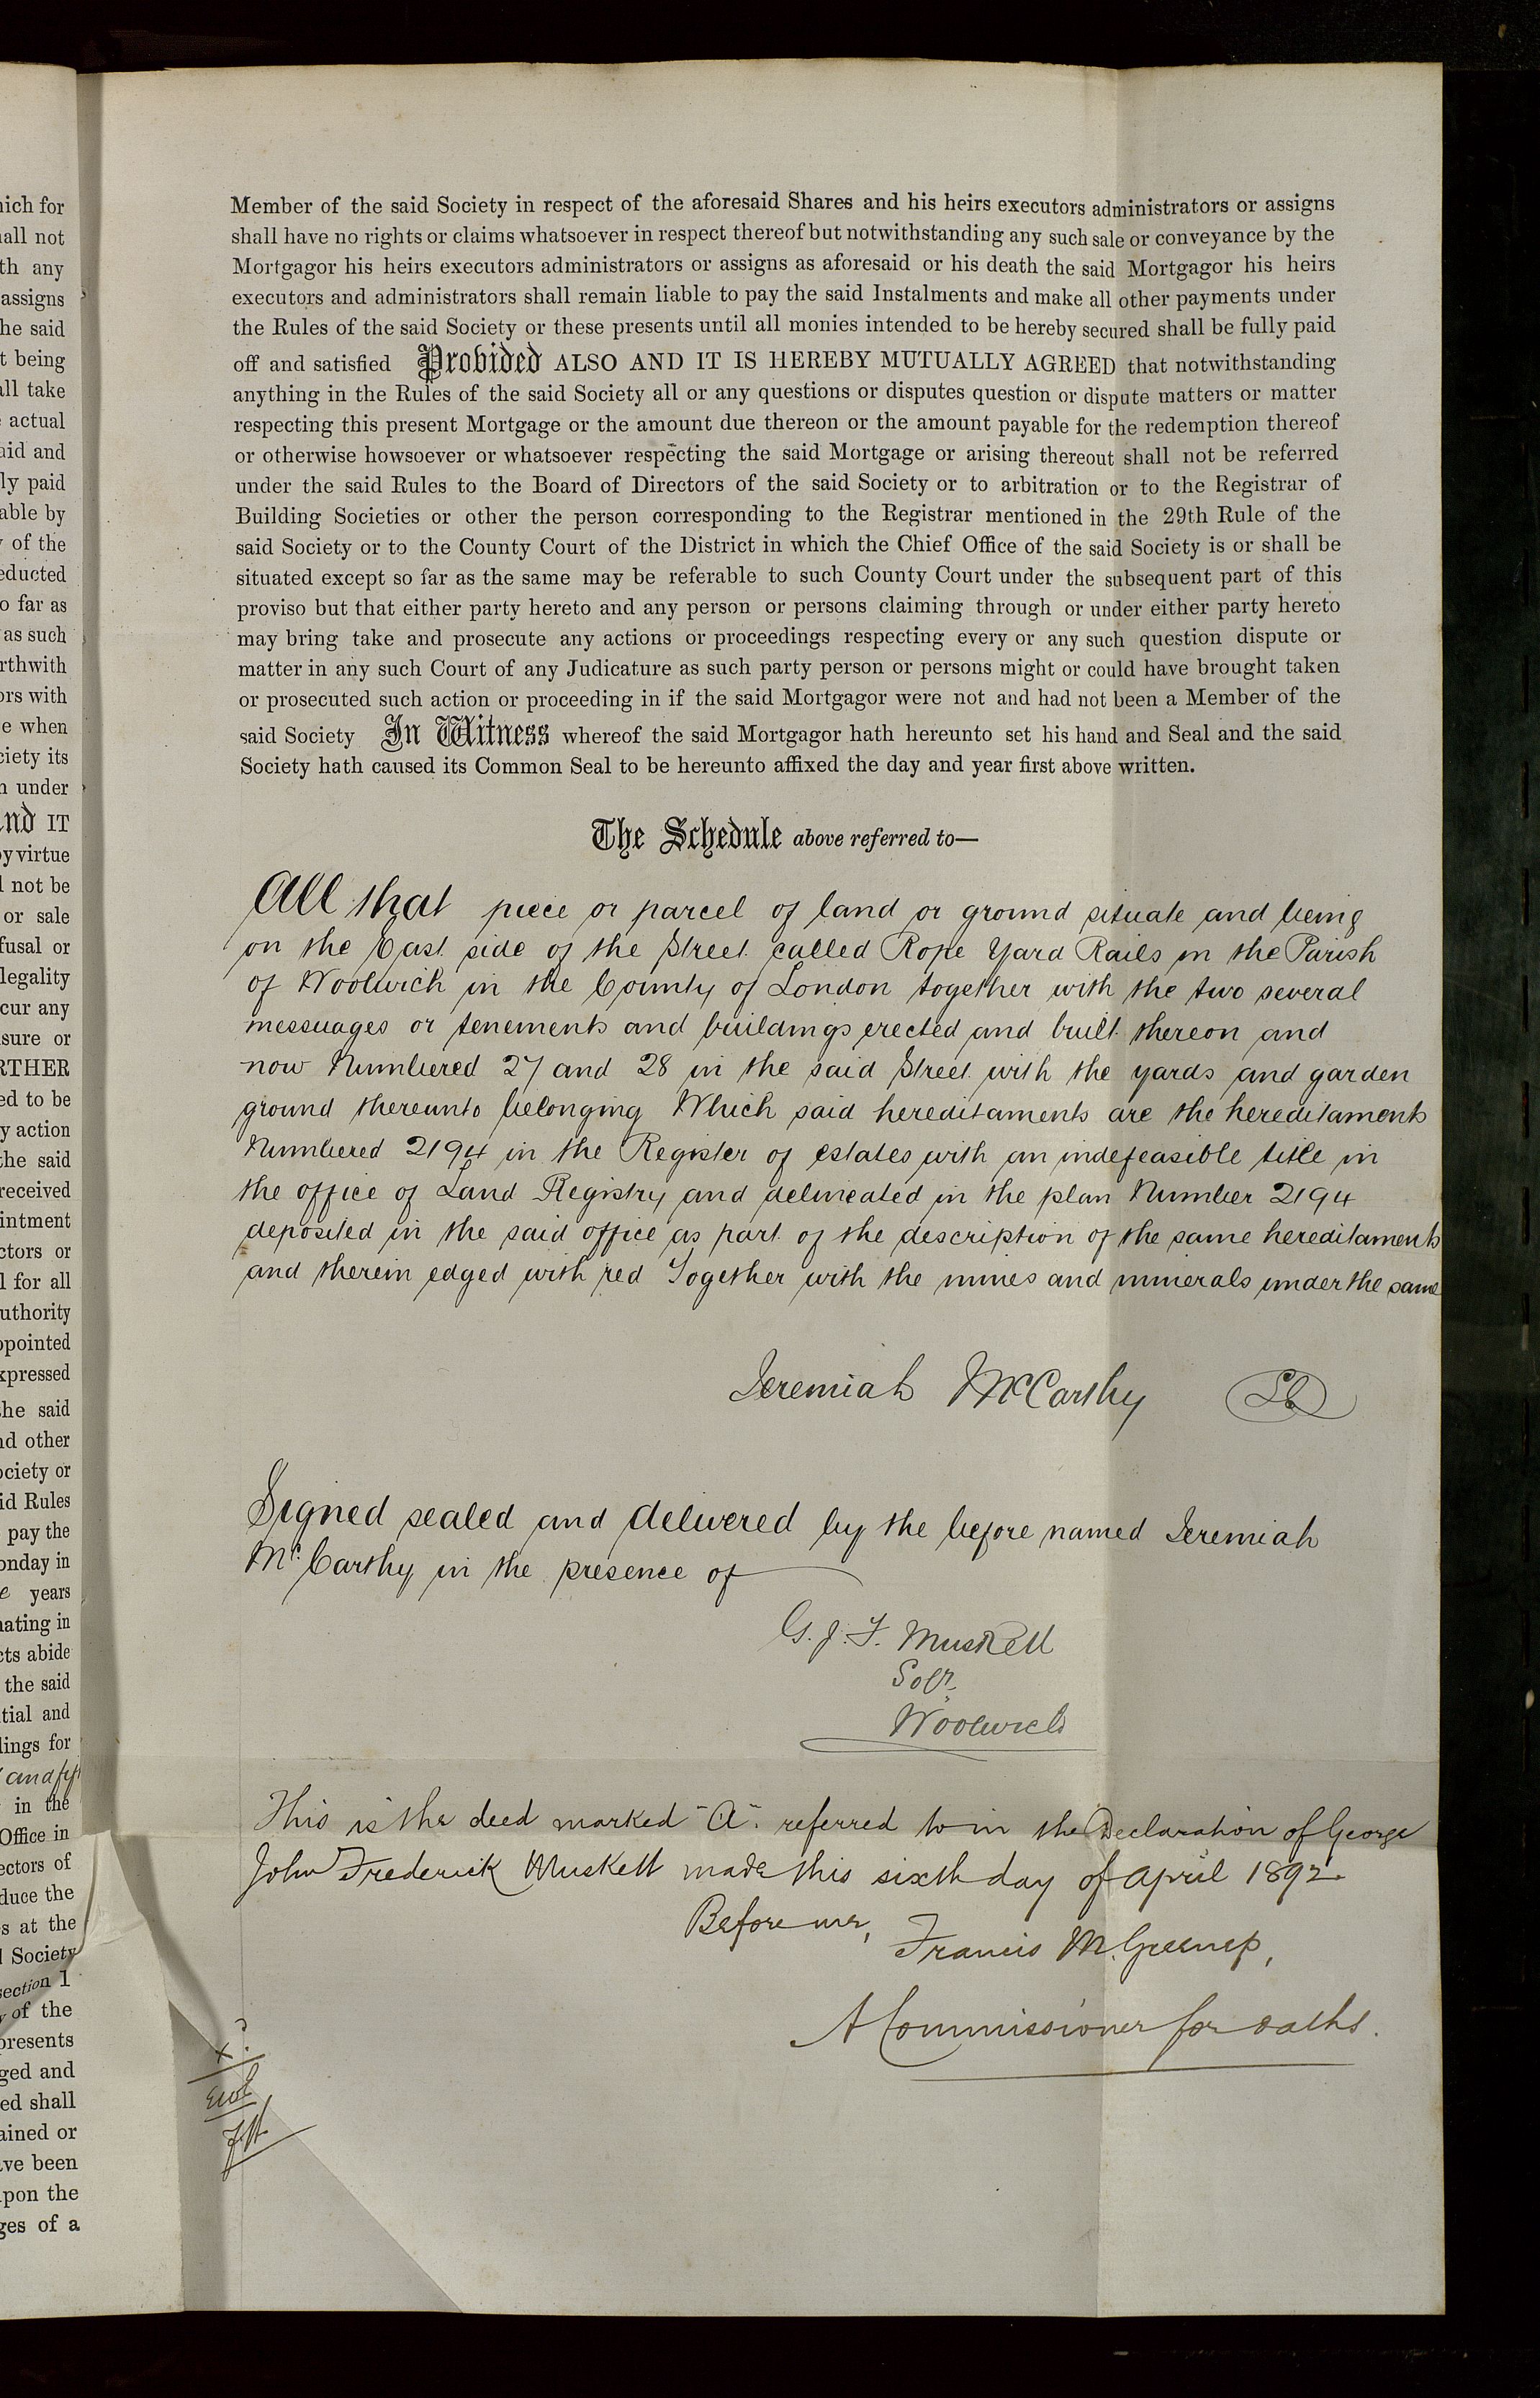 Member of the said Society in respect of the aforesaid Shares and his heirs executors administrators or assigns
shall have no rights or claims whatsoever in respect thereof but notwithstanding any such sale or conveyance by the
Mortgagor his heirs executors administrators or assigns as aforesaid or his death the said Mortgagor his heirs
executors and administrators shall remain liable to pay the said Instalments and make all other payments under
the Rules of the said Society or these presents until all monies intended to be hereby secured shall be fully paid
off and satisfied Provided ALSO AND IT IS HEREBY MUTUALLY AGREED that notwithstanding
anything in the Rules of the said Society all or any questions or disputes question or dispute matters or matter
respecting this present Mortgage or the amount due thereon or the amount payable for the redemption thereof
or otherwise howsoever or whatsoever respecting the said Mortgage or arising thereout shall not be referred
under the said Rules to the Board of Directors of the said Society or to arbitration or to the Registrar of
Building Societies or other the person corresponding to the Registrar mentioned in the 29th Rule of the
said Society or to the County Court of the District in which the Chief Office of the said Society is or shall be
situated except so far as the same may be referable to such County Court under the subsequent part of this
proviso but that either party hereto and any person or persons claiming through or under either party hereto
may bring take and prosecute any actions or proceedings respecting every or any such question dispute or
matter in any such Court of any Judicature as such party person or persons might or could have brought taken
or prosecuted such action or proceeding in if the said Mortgagor were not and had not been a Member of the
said Society In Witness whereof the said Mortgagor hath hereunto set his hand and Seal and the said
Society hath caused its Common Seal to be hereunto affixed the day and year first above written.
The Schedule above referred to—
All that piece or parcel of land or ground situate and being
on the East side of the Street called Rope Yard Rails in the Parish
of Woolwich in the County of London together with the two several
messuages or tenements and buildings erected and built thereon and
now Numbered 27 and 28 in the said Street with the yards and garden
ground thereunto belonging Which said hereditaments are the hereditaments
Numbered 2194 in the Register of estates with an indefeasible title in
the office of Land Registry and delineated in the plan Number 2194
deposited in the said office as part of the description of the same hereditaments
and therein edged with red Together with the mines and minerals under the same
Jeremiah McCarthy
Signed sealed and delivered by the before named Jeremiah
Mc.Carthy in the presence of
G. J. F. Muskett
Solr.
Woolwich
This is the deed marked "A". referred to in the Declaration of George
John Frederick Muskett made this sixth day of April 1892.
Before me,
Francis M. Greenep,
A Commissioner for oaths.